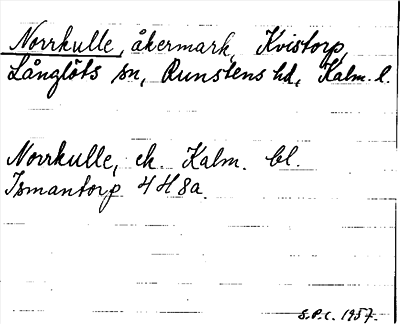 Norrkulle, åkermark, Kvistorp,
Långlöts sn, Runstens hd, Kalm. l.
Norrkulle, ek. Kalm. bl.
Ismantorp 4 H 8a
S.P.C. 1957.